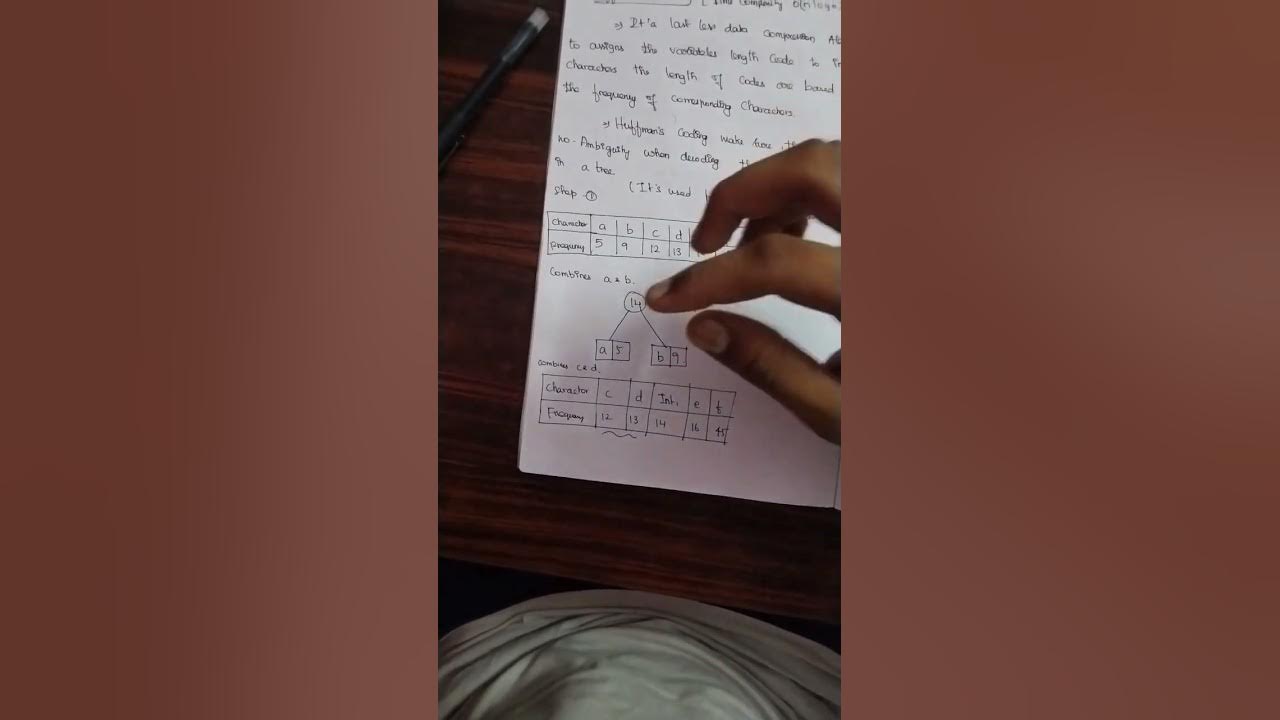 [ Time Complexity O(n log n
⇒ It'a last less data compression Al
to assigns the variables length Code to in
Charactors the length of Codes are based
the frequency of corresponding Charactors.
⇒ Huffman's Coding make sure th
no-Ambiguity when decoding th
in a tree.
Step-① (It's used
Charactor a b c d
Frequency 5 9 12 13
Combines a & b.
14
a 5 b 9
combines c&d.
Charactor c d Int. e f
Frequency 12 13 14 16 45